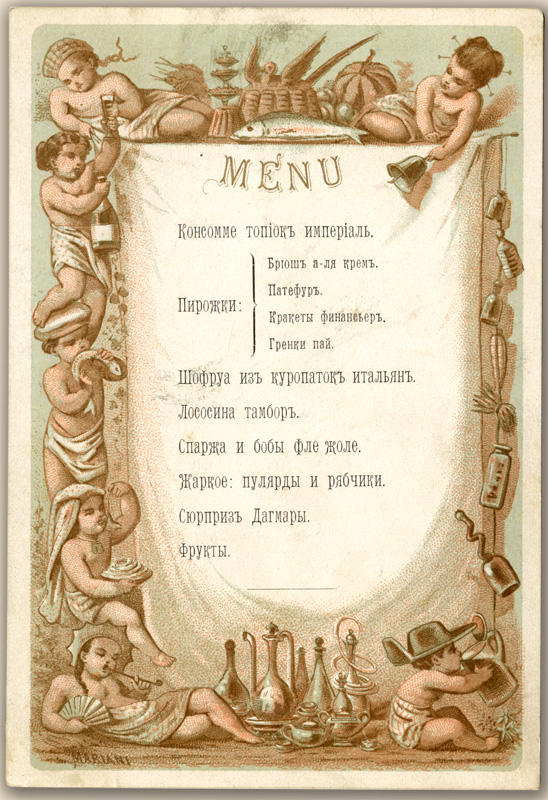 MENU
Консомме топіокъ имперіаль.
Пирожки:
Брюшъ а-ля кремъ.
Патефуръ.
Кракеты финансьеръ.
Гренки пай.
Шофруа изъ куропатокъ итальян.
Лососина тамборъ.
Спаржа и бобы фле жоле.
Жаркое: пулярды и рябчики.
Сюрпризъ Дагмары.
Фрукты.
MARIANI